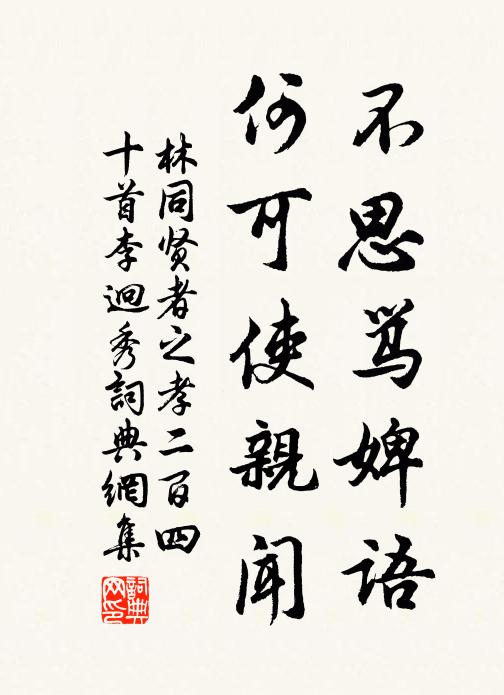 不思骂婢语
何可使親闻
林同贤者之孝二百四
十首李迥秀詞典網集
詞典
网印